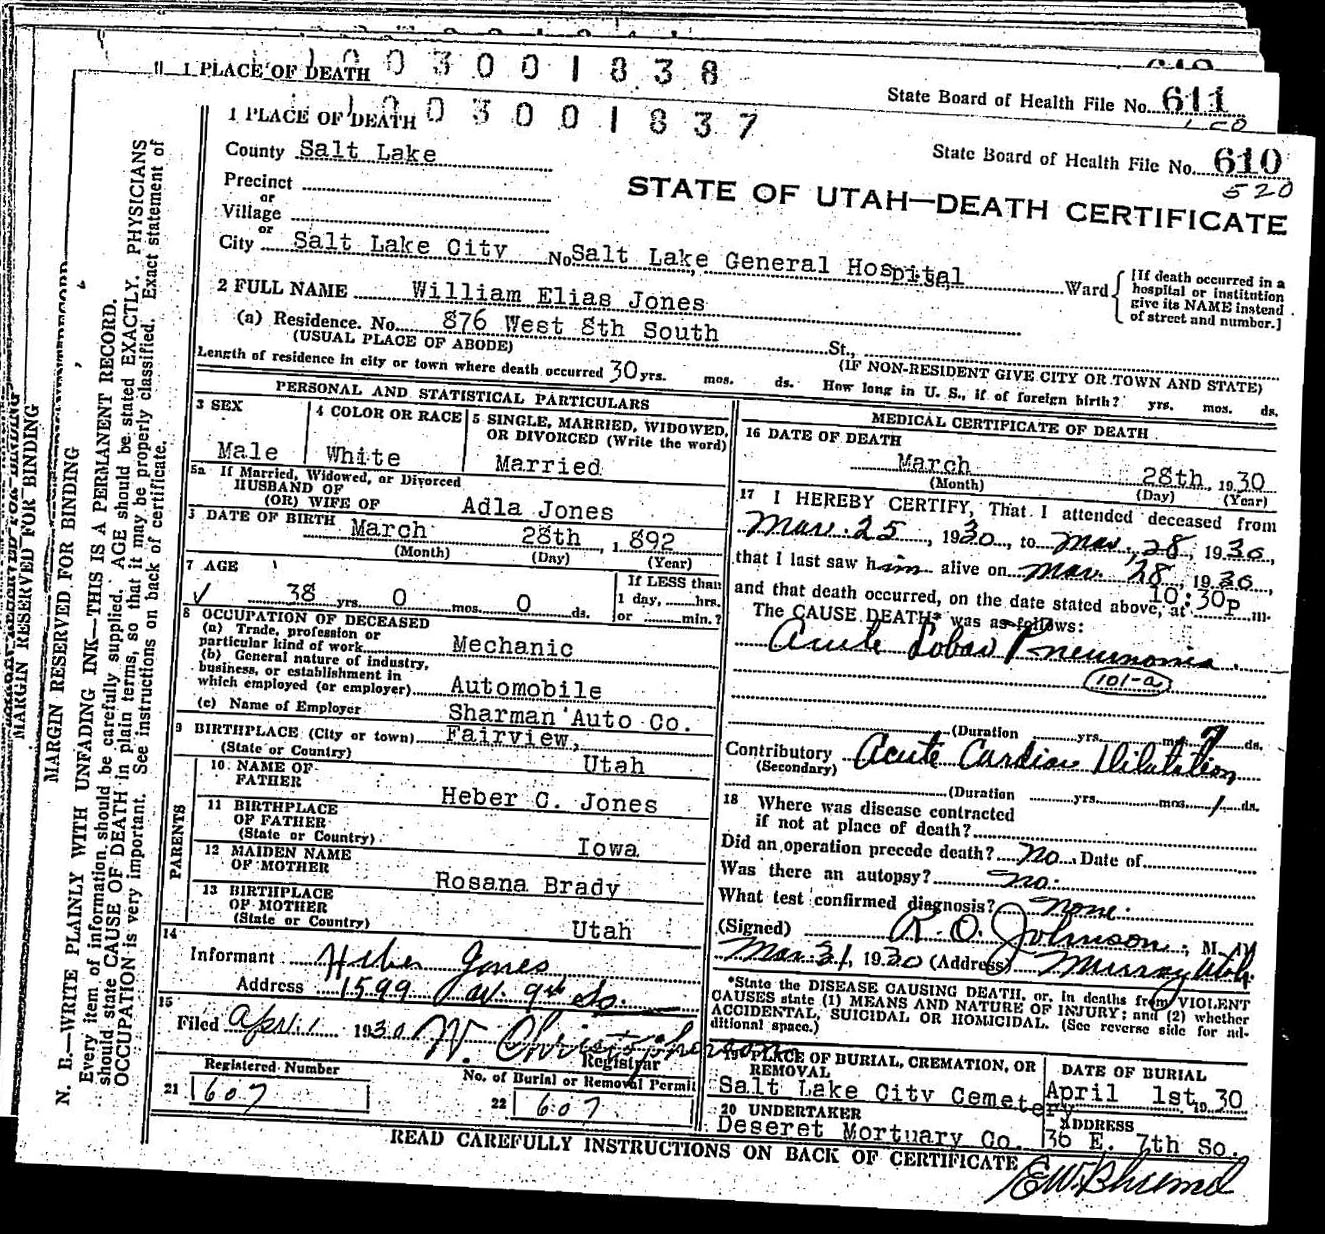 1 PLACE OF DEATH 1 0 0 3 0 0 1 8 3 8
State Board of Health File No. 611
1 PLACE OF DEATH 1 0 0 3 0 0 1 8 3 7
State Board of Health File No. 610
520
County Salt Lake
STATE OF UTAH—DEATH CERTIFICATE
Precinct
or
Village
or
City Salt Lake City No Salt Lake General Hospital Ward
[If death occurred in a
hospital or institution
give its NAME instead
of street and number.]
2 FULL NAME William Elias Jones
(a) Residence. No. 876 West 8th South St.,
(USUAL PLACE OF ABODE)
(IF NON-RESIDENT GIVE CITY OR TOWN AND STATE)
Length of residence in city or town where death occurred 30 yrs. mos. ds. How long in U. S., if of foreign birth? yrs. mos. ds.
PERSONAL AND STATISTICAL PARTICULARS
3 SEX
Male
4 COLOR OR RACE
White
5 SINGLE, MARRIED, WIDOWED,
OR DIVORCED (Write the word)
Married
5a If Married, Widowed, or Divorced
HUSBAND OF
(OR) WIFE OF Adla Jones
DATE OF BIRTH March 28th, 1892
(Month) (Day) (Year)
7 AGE
38 yrs. 0 mos. 0 ds.
If LESS than
1 day, hrs.
or min.?
8 OCCUPATION OF DECEASED
(a) Trade, profession or
particular kind of work Mechanic
(b) General nature of industry,
business, or establishment in
which employed (or employer) Automobile
(c) Name of Employer Sharman Auto Co.
9 BIRTHPLACE (City or town) Fairview,
(State or Country) Utah
PARENTS
10 NAME OF
FATHER Heber C. Jones
11 BIRTHPLACE
OF FATHER
(State or Country) Iowa
12 MAIDEN NAME
OF MOTHER Rosana Brady
13 BIRTHPLACE
OF MOTHER
(State or Country) Utah
14
Informant Heber Jones
Address 1599 W. 9th So.
15
Filed Apr. 1 1930 W. Christopherson
Registrar
Registered Number
21 607
No. of Burial or Removal Permit
22 607
MEDICAL CERTIFICATE OF DEATH
16 DATE OF DEATH
March 28th, 1930
(Month) (Day) (Year)
17 I HEREBY CERTIFY, That I attended deceased from
Mar. 25, 1930, to Mar. 28, 1930,
that I last saw him alive on Mar. 28, 1930,
and that death occurred, on the date stated above, at 10:30P m.
The CAUSE DEATH* was as follows:
Acute Lobar Pneumonia.
101-a
(Duration yrs. mos. 7 ds.
Contributory Acute Cardiac Dilatation
(Secondary)
(Duration yrs. mos. 1 ds.
18 Where was disease contracted
if not at place of death?
Did an operation precede death? No Date of
Was there an autopsy? no.
What test confirmed diagnosis? None.
(Signed) R. O. Johnson, M. D.
Mar. 31, 1930 (Address) Murray Utah
*State the DISEASE CAUSING DEATH, or, in deaths from VIOLENT
CAUSES state (1) MEANS AND NATURE OF INJURY; and (2) whether
ACCIDENTAL, SUICIDAL OR HOMICIDAL. (See reverse side for ad-
ditional space.)
19 PLACE OF BURIAL, CREMATION, OR
REMOVAL
Salt Lake City Cemetery
DATE OF BURIAL
April 1st, 1930
20 UNDERTAKER
Deseret Mortuary Co.
ADDRESS
36 E. 7th So.
READ CAREFULLY INSTRUCTIONS ON BACK OF CERTIFICATE
MARGIN RESERVED FOR BINDING
MARGIN RESERVED FOR BINDING
N. B.—WRITE PLAINLY WITH UNFADING INK—THIS IS A PERMANENT RECORD.
Every item of information should be carefully supplied. AGE should be stated EXACTLY. PHYSICIANS
should state CAUSE OF DEATH in plain terms, so that it may be properly classified. Exact statement of
OCCUPATION is very important. See instructions on back of certificate.